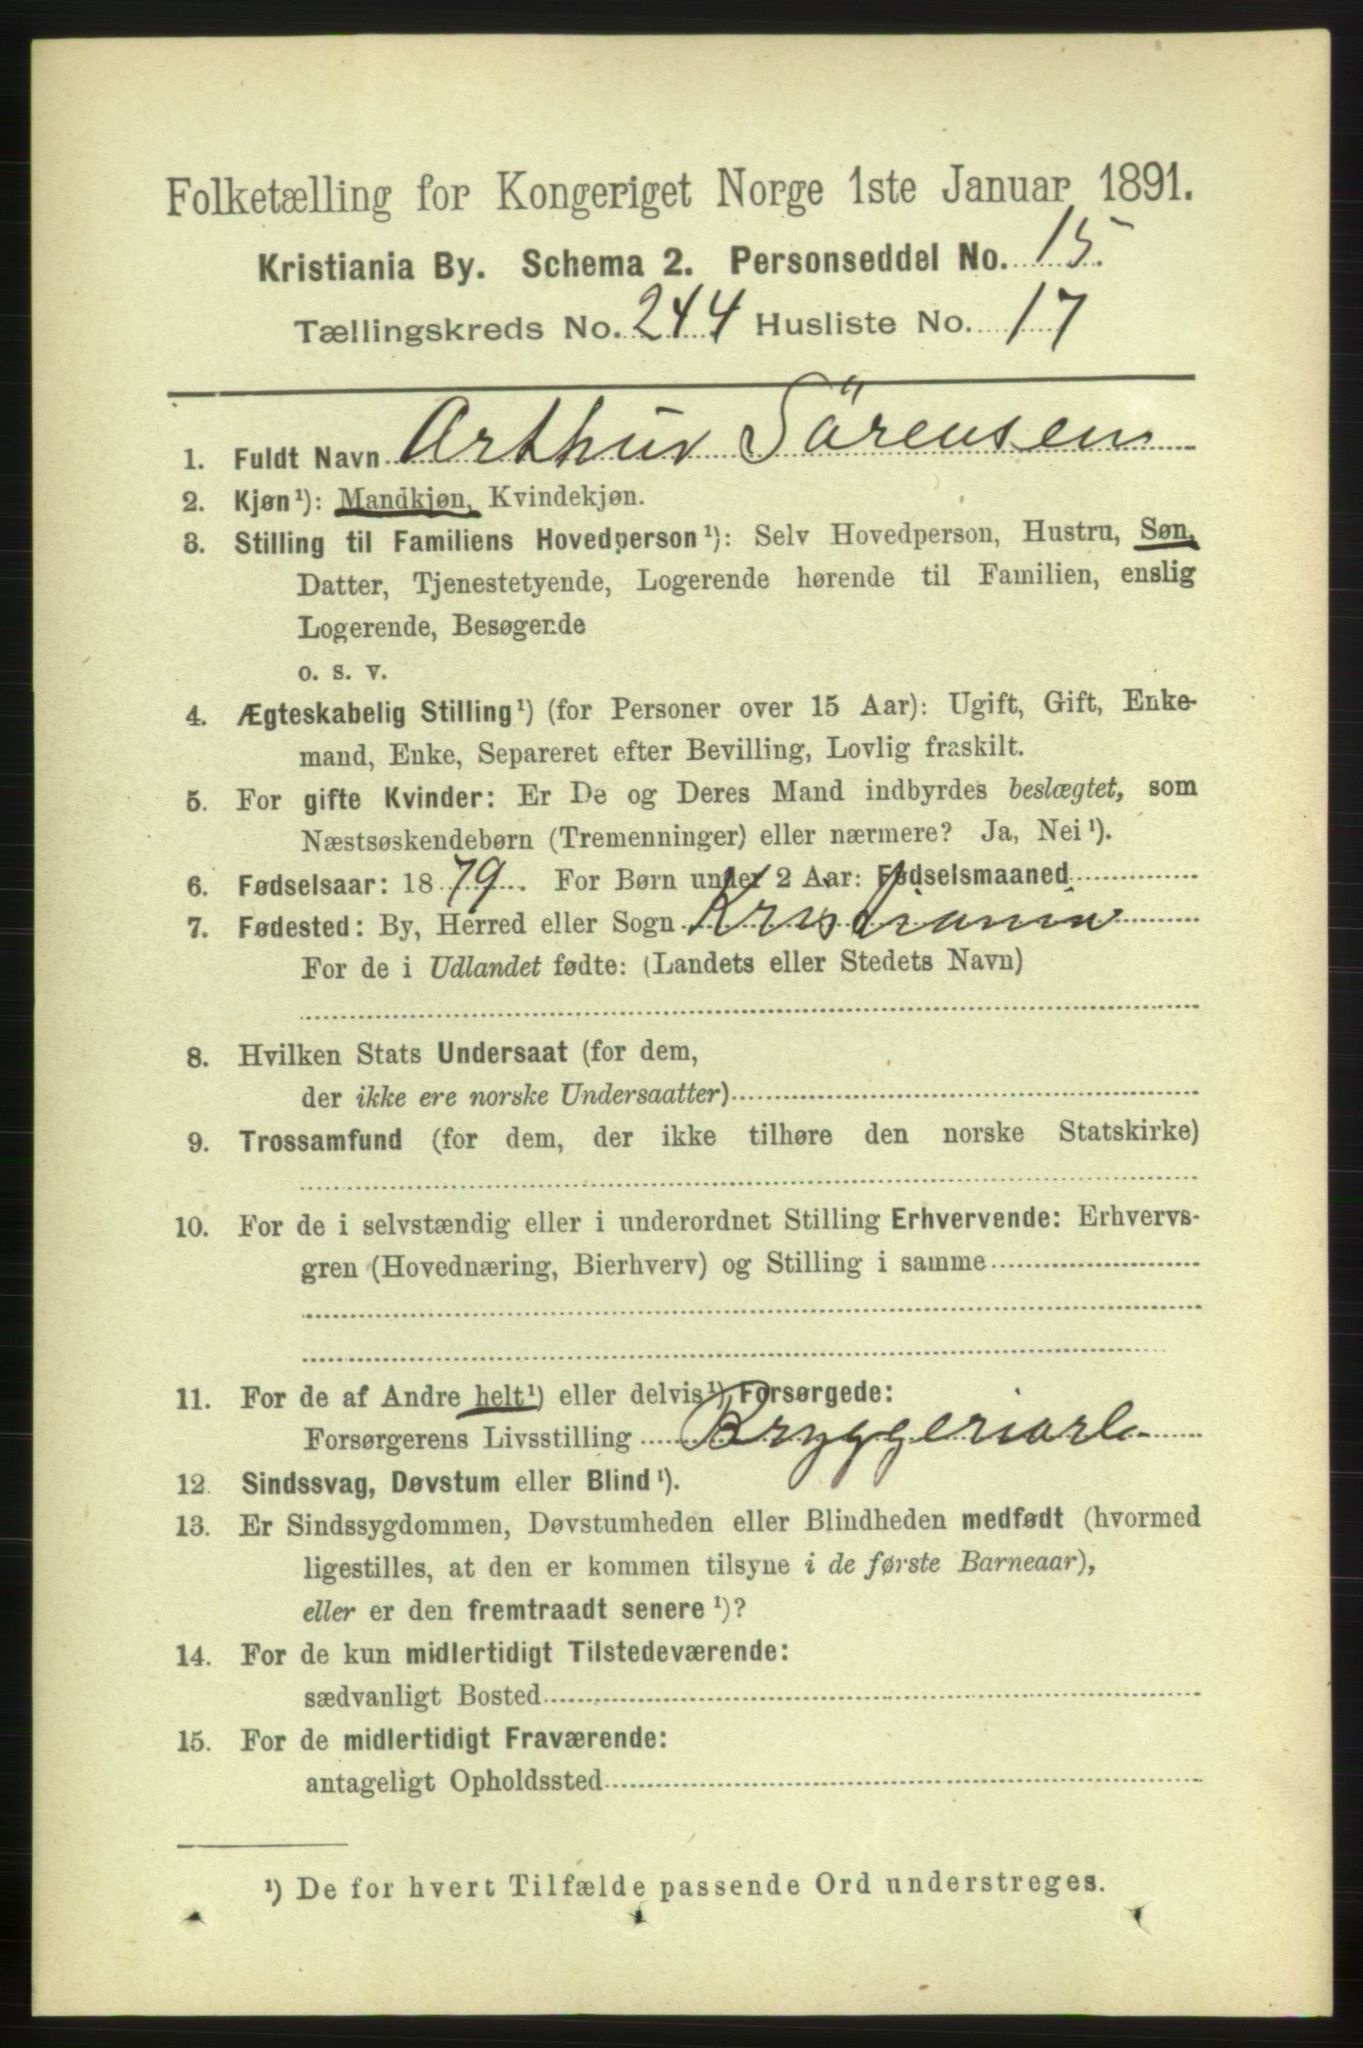 Folketælling for Kongeriget Norge 1ste Januar 1891.
Kristiania By. Schema 2. Personseddel No. 15.
Tællingskreds No. 244 Husliste No. 17
1. Fuldt Navn Arthur Sörensen
2. Kjøn¹): Mandkjøn, Kvindekjøn.
3. Stilling til Familiens Hovedperson¹): Selv Hovedperson, Hustru, Søn,
Datter, Tjenestetyende, Logerende hørende til Familien, enslig
Logerende, Besøgende
o. s. v.
4. Ægteskabelig Stilling¹) (for Personer over 15 Aar): Ugift, Gift, Enke-
mand, Enke, Separeret efter Bevilling, Lovlig fraskilt.
5. For gifte Kvinder: Er De og Deres Mand indbyrdes beslægtet, som
Næstsøskendebørn (Tremenninger) eller nærmere? Ja, Nei¹).
6. Fødselsaar: 1879. For Børn under 2 Aar: Fødselsmaaned
7. Fødested: By, Herred eller Sogn Kristiania
For de i Udlandet fødte: (Landets eller Stedets Navn)
8. Hvilken Stats Undersaat (for dem,
der ikke ere norske Undersaatter)
9. Trossamfund (for dem, der ikke tilhøre den norske Statskirke)
10. For de i selvstændig eller i underordnet Stilling Erhvervende: Erhvervs-
gren (Hovednæring, Bierhverv) og Stilling i samme
11. For de af Andre helt¹) eller delvis¹) Forsørgede:
Forsørgerens Livsstilling Bryggeriarb
12. Sindssvag, Døvstum eller Blind¹).
13. Er Sindssygdommen, Døvstumheden eller Blindheden medfødt (hvormed
ligestilles, at den er kommen tilsyne i de første Barneaar),
eller er den fremtraadt senere¹)?
14. For de kun midlertidigt Tilstedeværende:
sædvanligt Bosted
15. For de midlertidigt Fraværende:
antageligt Opholdssted
¹) De for hvert Tilfælde passende Ord understreges.